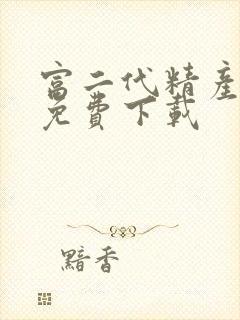 富二代精產
免費下載
黯香